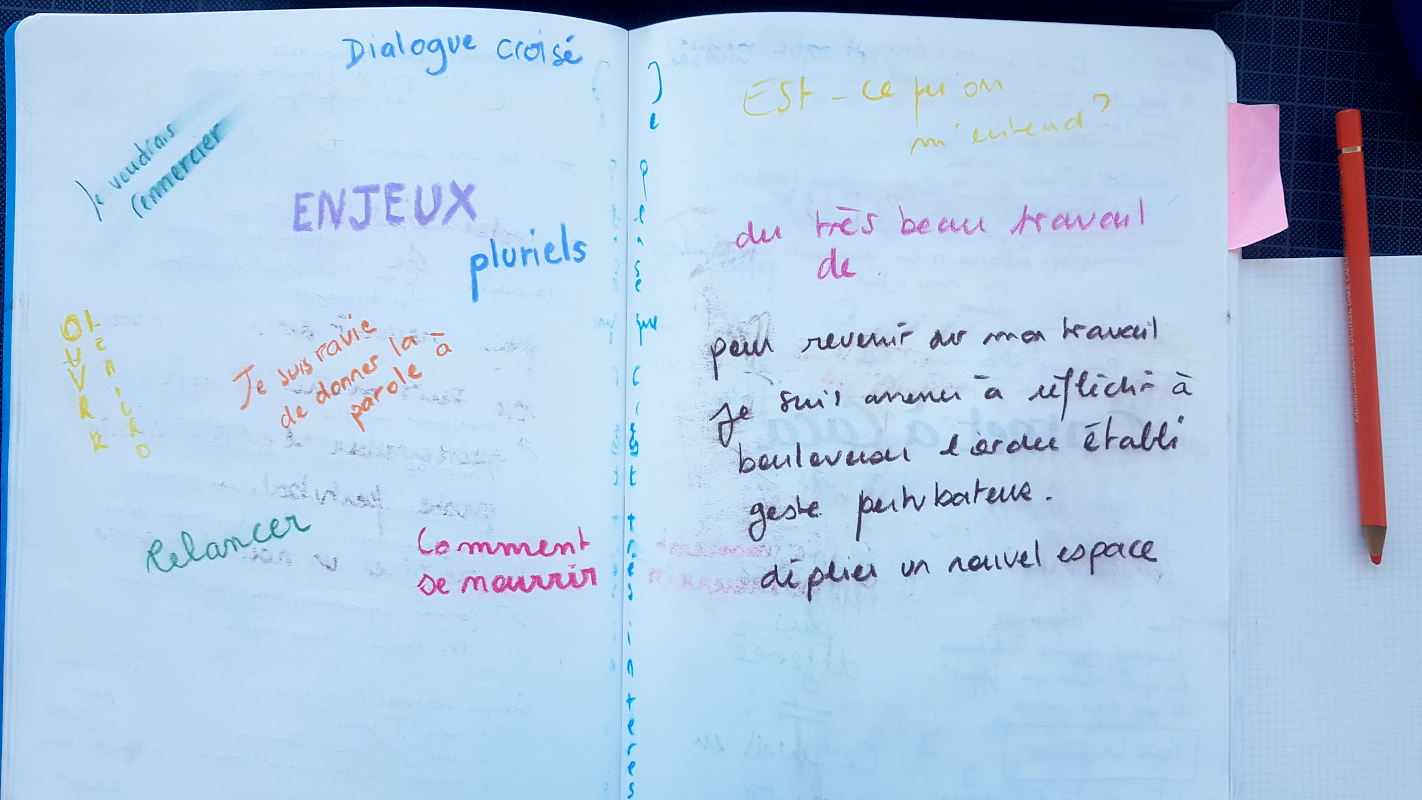 Dialogue croisé
Je voudrais
remercier
ENJEUX
pluriels
OUVRIR
LE MICRO
Je suis ravie
de donner la
parole à
Relancer
Comment
se nourrir
Je pense que c'est très intéres
Est-ce qu'on
m'entend?
du très beau travail
de
pour revenir sur mon travail
je suis amener à réfléchir à
bouleverser l'ordre établi
geste perturbateur.
déplier un nouvel espace